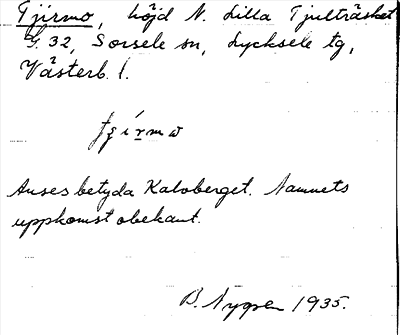 Tjirmo, höjd N. Lilla Tjulträsket
G. 32, Sorsele sn, Lycksele tg,
Västerb. l.
Anses betyda Kalvberget. Namnets
uppkomst obekant.
B. Nygren 1935.